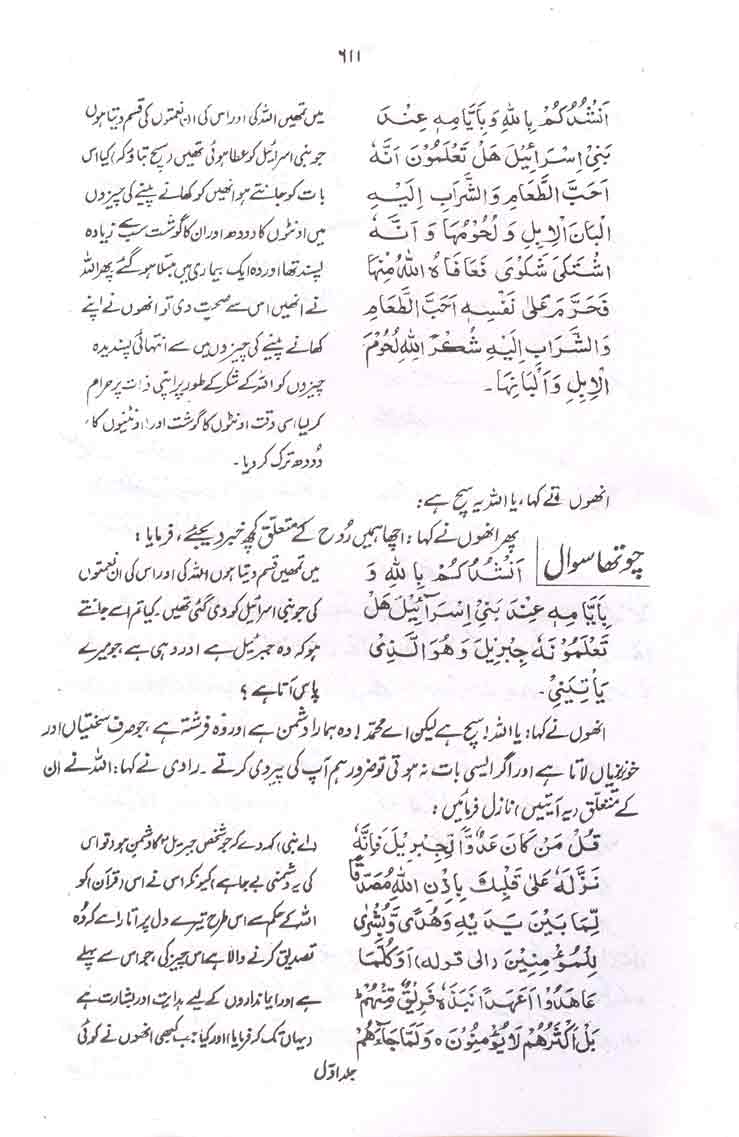 ۶۱۱
اَنْشُدُكُمْ بِاللّٰهِ وَبِاَيَّامِهٖ عِنْدَ
بَنِيْٓ اِسْرَائِيْلَ هَلْ تَعْلَمُوْنَ اَنَّهٗ
اَحَبَّ الطَّعَامِ وَالشَّرَابِ اِلَيْهِ
اَلْبَانُ الْاِبِلِ وَلُحُوْمُهَا وَ اَنَّهٗ
اشْتَكٰى شَكْوٰى فَعَافَاهُ اللّٰهُ مِنْهَا
فَحَرَّمَ عَلٰى نَفْسِهٖ اَحَبَّ الطَّعَامِ
وَالشَّرَابِ اِلَيْهِ شُكْرً اللّٰهِ لُحُوْمَ
الْاِبِلِ وَاَلْبَانِهَا۔
میں تمھیں اللہ کی اور اس کی ان نعمتوں کی قسم دیتا ہوں
جو بنی اسرائیل کو عطا ہوئی تھیں (سچ بتاؤ کہ) کیا اس
بات کو جانتے ہو انھیں کو کھانے پینے کی چیزوں
میں اونٹوں کا دودھ اور ان کا گوشت سب سے زیادہ
پسند تھا اور وہ ایک بیماری میں مبتلا ہو گئے پھر اللہ
نے انھیں اس سے صحت دی تو انھوں نے اپنے
کھانے پینے کی چیزوں میں سے انتہائی پسندیدہ
چیزوں کو اللہ کے شکر کے طور پر اپنی ذات پر حرام
کر لیا اسی وقت اونٹوں کا گوشت اور اونٹنیوں کا
دودھ ترک کر دیا۔
انھوں نے کہا، یا اللہ یہ سچ ہے:
پھر انھوں نے کہا: اچھا ہمیں رُوح کے متعلق کچھ خبر دیجئے، فرمایا:
چوتھا سوال
اَنْشُدُكُمْ بِاللّٰهِ وَ
بِاَيَّامِهٖ عِنْدَ بَنِيْٓ اِسْرَآئِيْلَ هَلْ
تَعْلَمُوْنَهٗ جِبْرِيْلَ وَهُوَ الَّذِيْ
يَاْتِيْنِيْ۔
میں تمھیں قسم دیتا ہوں اللہ کی اور اس کی ان نعمتوں
کی جو بنی اسرائیل کو دی گئی تھیں۔ کیا تم اسے جانتے
ہو کہ وہ جبرئیل ہے اور وہی ہے جو میرے
پاس آتا ہے؟
انھوں نے کہا: یا اللہ! سچ ہے لیکن اے محمد! وہ ہمارا دشمن ہے اور وہ فرشتہ ہے، جو صرف سختیاں اور
خوں ریزیاں لاتا ہے اور اگر ایسی بات نہ ہوتی تو ضرور ہم آپ کی پیروی کرتے۔ راوی نے کہا: اللہ نے ان
کے متعلق (یہ آیتیں) نازل فرمائیں:
قُلْ مَنْ كَانَ عَدُوًّا لِّجِبْرِيْلَ فَاِنَّهٗ
نَزَّلَهٗ عَلٰى قَلْبِكَ بِاِذْنِ اللّٰهِ مُصَدِّقًا
لِّمَا بَيْنَ يَدَيْهِ وَهُدًى وَّبُشْرٰى
لِلْمُؤْمِنِيْنَ (الى قوله) اَوَكُلَّمَا
عَاهَدُوْا عَهْدًا نَّبَذَهٗ فَرِيْقٌ مِّنْهُمْ
بَلْ اَكْثَرُهُمْ لَا يُؤْمِنُوْنَ ه وَلَمَّا جَآءَهُمْ
(اے نبی) کہہ دے کہ جو شخص جبریل کا دشمن ہو (تو اس
کی یہ دشمنی بے جا ہے) کیونکہ اس نے اس (قرآن) کو
اللہ کے حکم سے اس طرح تیرے دل پر اتارا ہے کہ وہ
تصدیق کرنے والا ہے اس چیز کی، جو اس سے پہلے
ہے اور ایمانداروں کے لیے ہدایت اور بشارت ہے
(یہاں تک کہ فرمایا) اور کیا جب کبھی انھوں نے کوئی
جلد اوّل